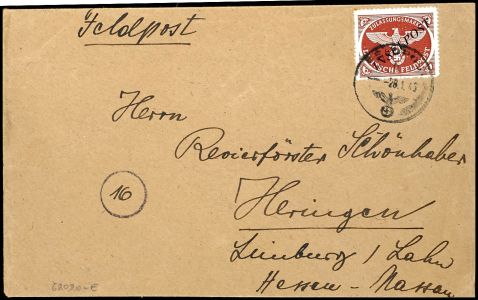 Feldpost
ZULASSUNGSMARKE
DEUTSCHE FELDPOST
Herrn
Revierförster Schönhaber
16
Heringen
Limburg / Lahn
Hessen-Nassau